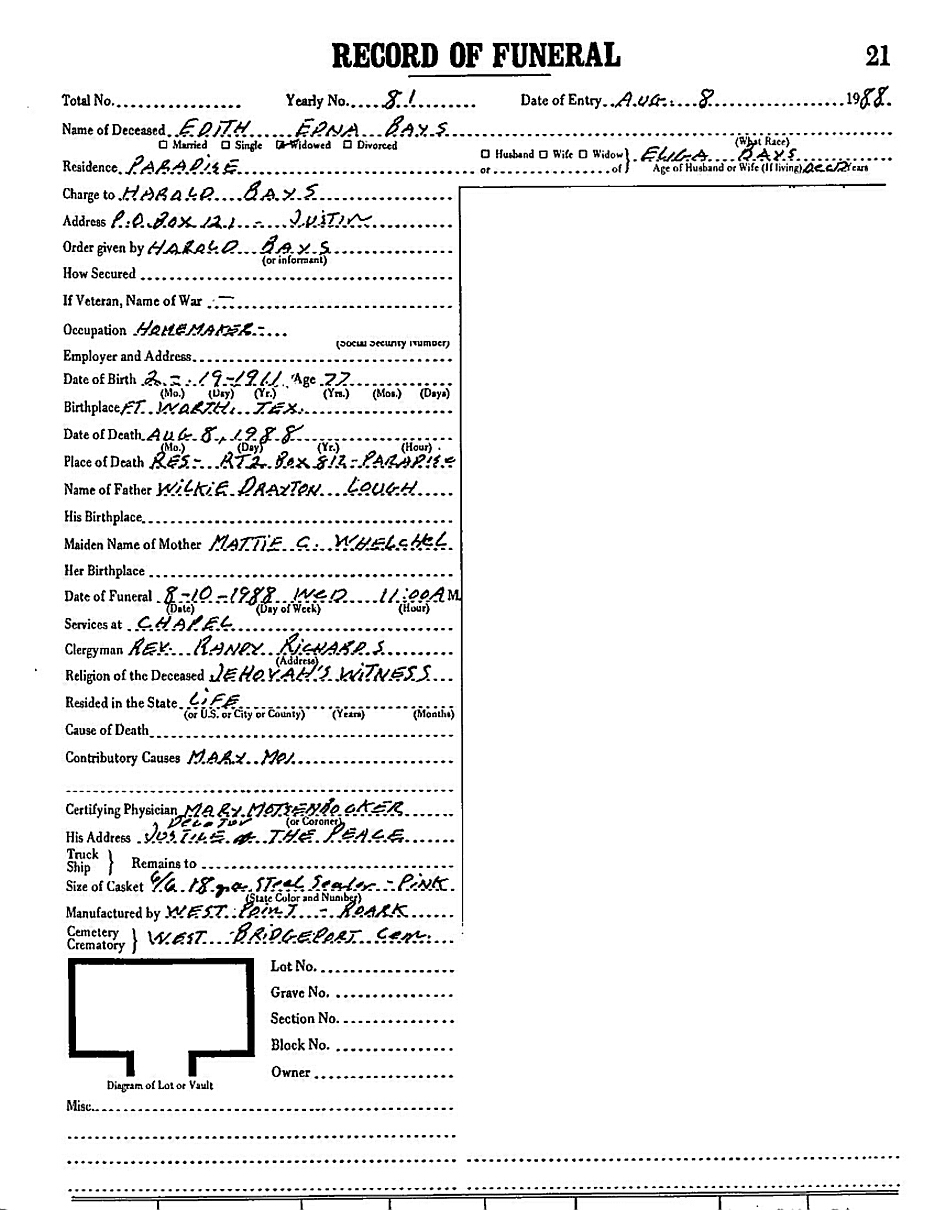 RECORD OF FUNERAL 21
Total No. Yearly No. 81 Date of Entry AUG. 8 1988.
Name of Deceased EDITH EDNA BAYS
☐ Married ☐ Single ☑ Widowed ☐ Divorced (What Race)
☐ Husband ☐ Wife ☐ Widow } ELIGA BAYS
Residence PARADISE or of } Age of Husband or Wife (If living) Dec'd Years
Charge to HARALD BAYS
Address P.O. BOX 121 - JUSTIN
Order given by HARALD BAYS
(or informant)
How Secured
If Veteran, Name of War —
Occupation HOMEMAKER -
(Social Security Number)
Employer and Address
Date of Birth 2 - 19 - 1911 Age 77
(Mo.) (Day) (Yr.) (Yrs.) (Mos.) (Days)
Birthplace FT. WORTH, TEX.
Date of Death AUG 8, 1988
(Mo.) (Day) (Yr.) (Hour)
Place of Death RES - RT2 BOX 812 - PARADISE
Name of Father WILKIE DRAYTON LOUGH
His Birthplace
Maiden Name of Mother MATTIE C. WHELCHEL
Her Birthplace
Date of Funeral 8-10-1988 WED 11:00 A M.
(Date) (Day of Week) (Hour)
Services at CHAPEL
Clergyman REV. RANDY RICHARDS
(Address)
Religion of the Deceased JEHOVAH'S WITNESS
Resided in the State LIFE
(or U.S. or City or County) (Years) (Months)
Cause of Death
Contributory Causes MARY MOT
Certifying Physician MARY MOTSENBOCKER
Decatur (or Coroner)
His Address JUSTICE of THE PEACE
Truck
Ship } Remains to
Size of Casket 6/6 18 ga STEEL Sealer - PINK
(State Color and Number)
Manufactured by WEST POINT - ROARK
Cemetery
Crematory } WEST BRIDGEPORT Cem.
Lot No.
Grave No.
Section No.
Block No.
Owner
Diagram of Lot or Vault
Misc.